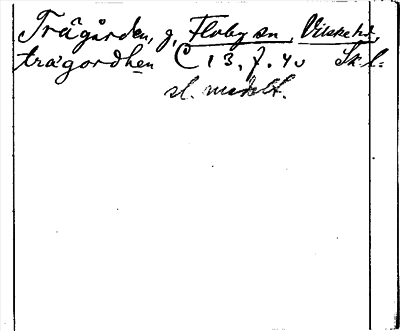 Trägården, g, Floby sn, Vilske hd,
tragordhen C 13, 7. 40 Sk l:
sl. medelt.